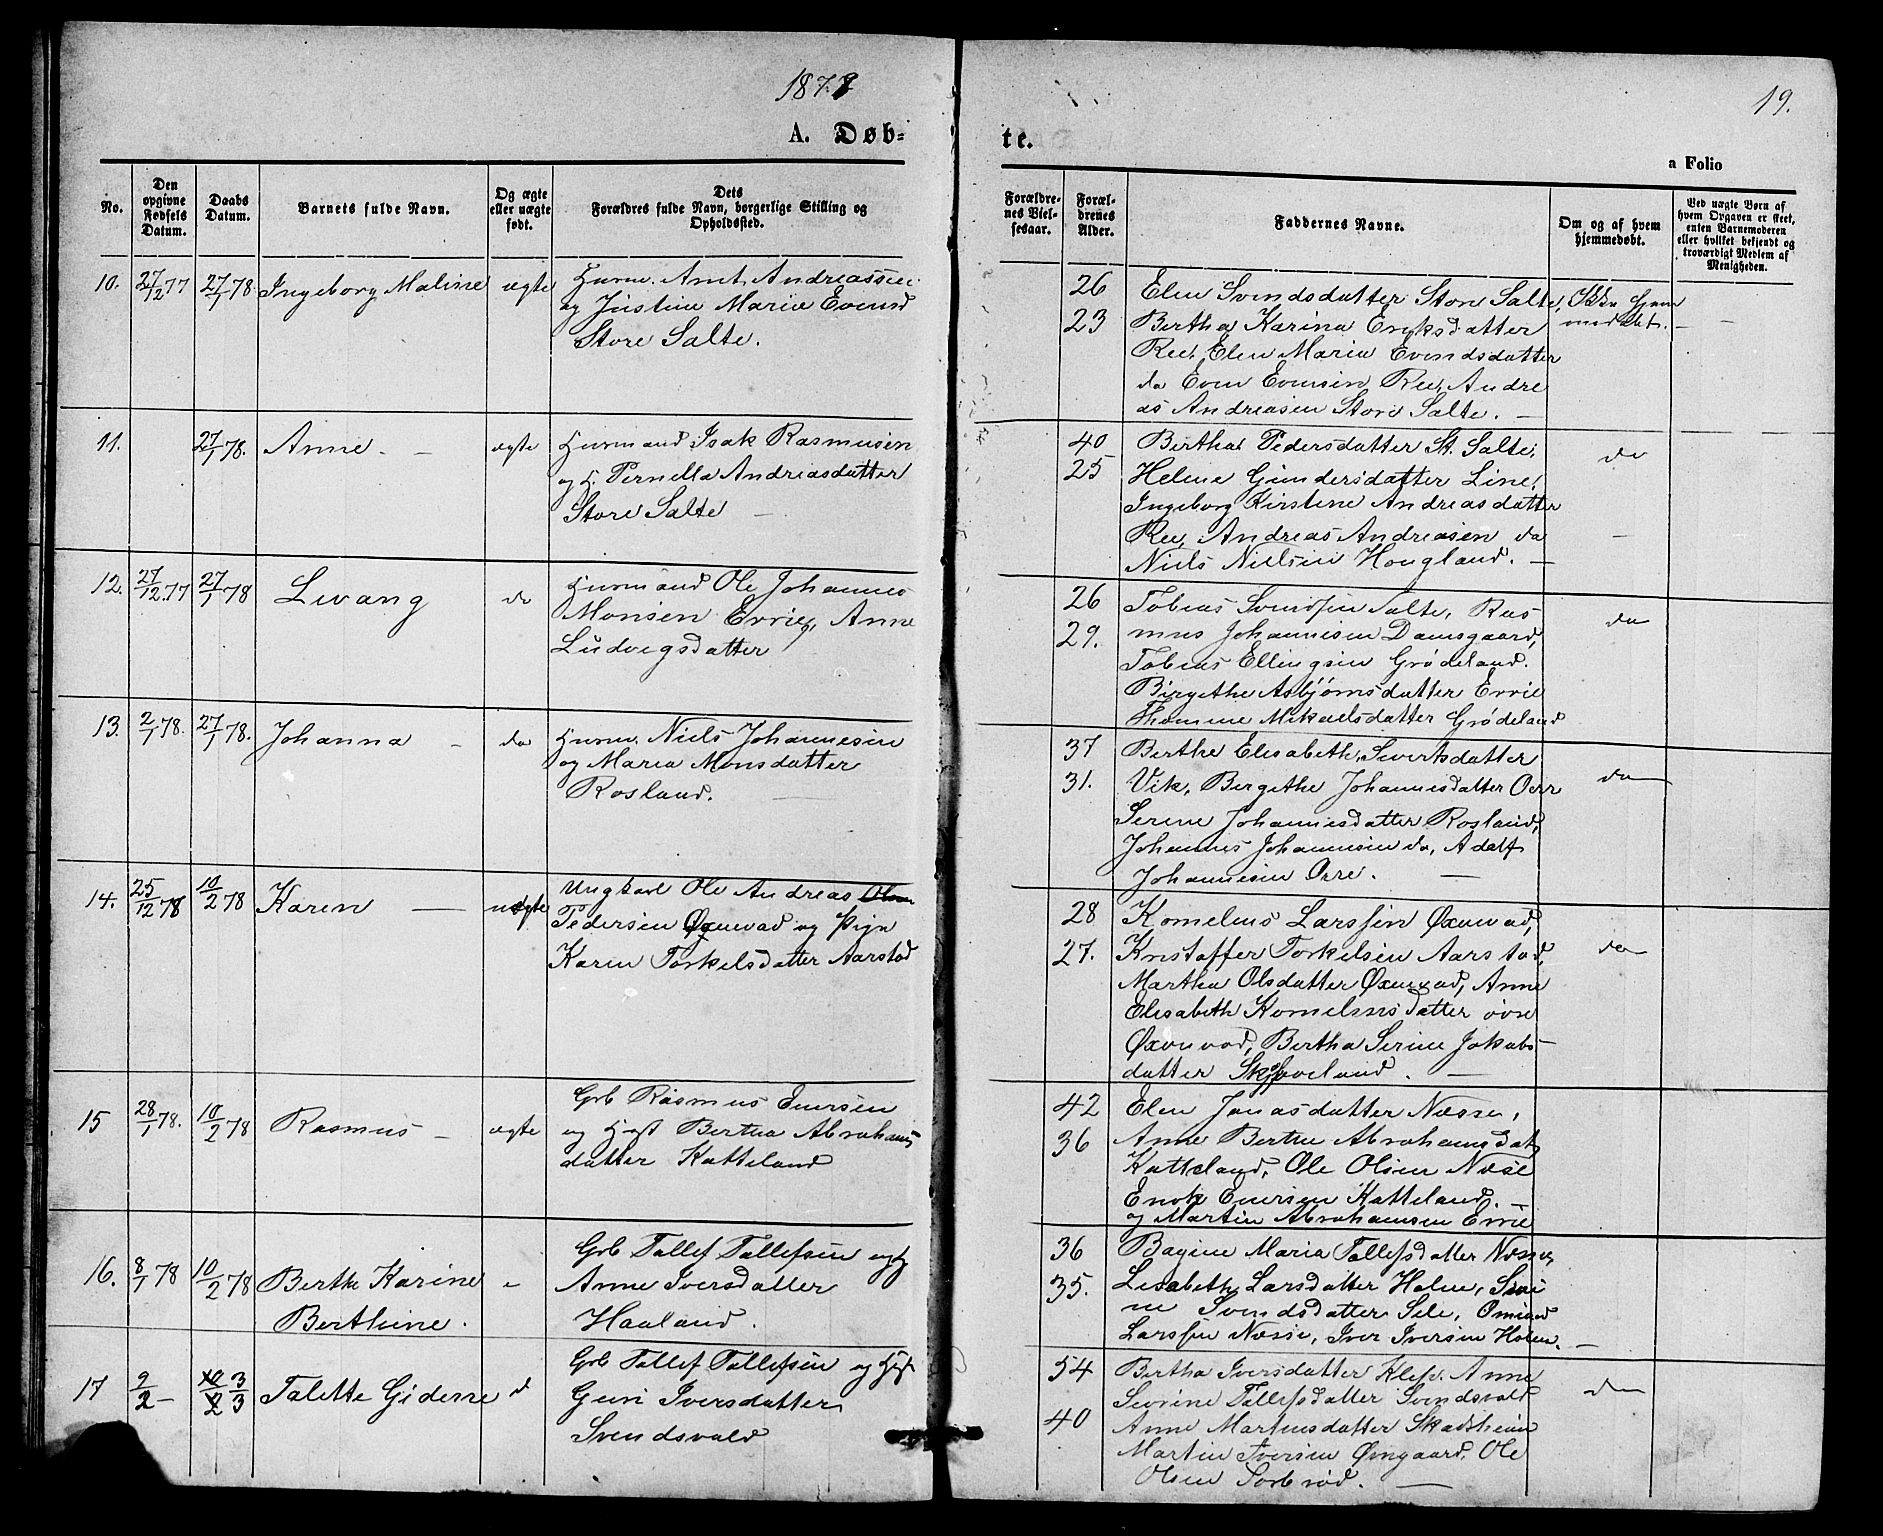 1878
19.
A. Døb-
te.
a Folio
No.
Den opgivne Fødsels Datum.
Daabs Datum.
Barnets fulde Navn.
Og ægte eller uægte født.
Dets Forældres fulde Navn, borgerlige Stilling og Opholdssted.
Forældrenes Vielsesaar.
Forældrenes Alder.
Faddernes Navne.
Om og af hvem hjemmedøbt.
Ved uægte Børn af hvem Opgaven er skeet, enten Barnemoderen eller hvilket bekjendt og troværdigt Medlem af Menigheden.
10. 27/12 77 27/1 78. Ingeborg Maline ægte
Huusm. Arnt Andreassen
og Justine Maria Evensd
Store Salte.
26
23
Elen Svendsdatter Store Salte,
Bertha Karina Eriksdatter
Ree, Elen Maria Evendsdatter
do Even Evensen Ree, Andre
as Andreasen Store Salte. —
Ikke hjem
medøbt. —
11. 27/1 78. Anne — ægte
Huusmand Isak Rasmusen
og H. Pernella Andreasdatter
Store Salte —
40
25
Bertha Pedersdatter St. Salte,
Helene Gundersdatter Line,
Ingeborg Kirstine Andreasdatter
Ree, Andreas Andreasen do
Niels Nielsen Hougland. —
do
12. 27/12 77 27/1 78 Levang do
Huusmand Ole Johannes
Monsen Errie, Anne
Ludvigsdatter
26
29.
Tobias Svendsen Salte, Ras
mus Johannesen Damsgaard,
Tobias Ellingsen Grødeland.
Birgethe Asbjørnsdatter Errie
Thomine Mikaelsdatter Grødeland
do
13. 2/1 78. 27/1 78. Johanna — do
Huusm. Niels Johannesen
og Maria Monsdatter
Rosland. —
37
31.
Berthe Elisabeth Sivertsdatter
Vik, Bergethe Johannesdatter Orr
Serine Johannesdatter Rosland,
Johannes Johannesen do, Adolf
Johannesen Orre. —
do
14. 25/12 78 10/2 78 Karen — uægte
Ungkarl Ole Andreas
Pedersen Øxnevad og Pige
Karen Torkelsdatter Aarstad
28
27.
Kornelius Larssen Øxnevad,
Kristoffer Torkelsen Aarstad,
Martha Olsdatter Øxnevad, Anne
Elisabeth Korneliusdatter øvre
Øxnevad, Bertha Serine Jakobs-
datter Skjæveland. —
do
15 28/1 78. 10/2 78 Rasmus — ægte
Grb Rasmus Enersen
og Hust Bertha Abrahams
datter Katteland
42
36
Elen Jonasdatter Næsse,
Anne Berthe Abrahamsdat
Katteland, Ole Olsen Næse
Enok Enersen Katteland. —
og Martin Abrahamsen Errie
16. 8/1 78 10/2 78 Berthe Karine
Berthine.
Grb Tallef Tallefsen og
Anne Iversdatter
Haaland.
36
35.
Bagine Maria Tallefsdatter Næsse,
Lisabeth Larsdatter Holen, Seri
ne Svendsdatter Sele, Omund
Larssen Næsse, Iver Iversen Holen. —
17 2/2 — 3/3 Talette Giderne d
Grb Tallef Tallefsen og Hust
Guri Iversdatter
Svendsvold
54
40
Bertha Iversdatter Klep. Anne
Severine Tallefsdatter Svendsvold
Anne Martinsdatter Skadsheim
Martin Iversen Øvregaard, Ole
Olsen Sorbrød. —
do